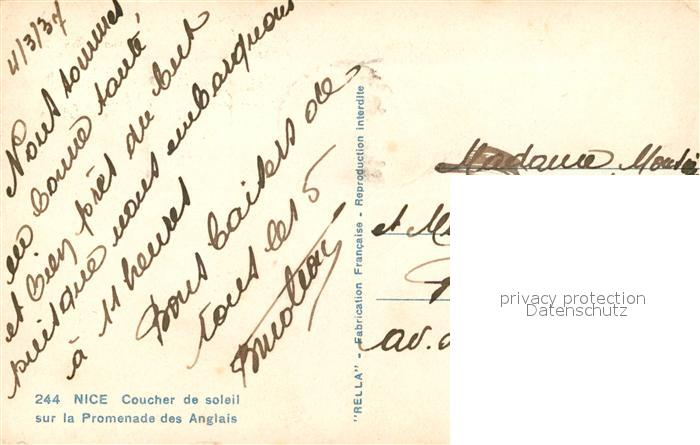 4/3/37
Nous sommes
en bonne santé,
et bien près du but
puisque nous embarquons
à 11 heures
Bons baisers de
tous les 5
244 NICE Coucher de soleil
sur la Promenade des Anglais
"RELLA" - Fabrication Française - Reproduction interdite
Madame
et
av.
privacy protection
Datenschutz